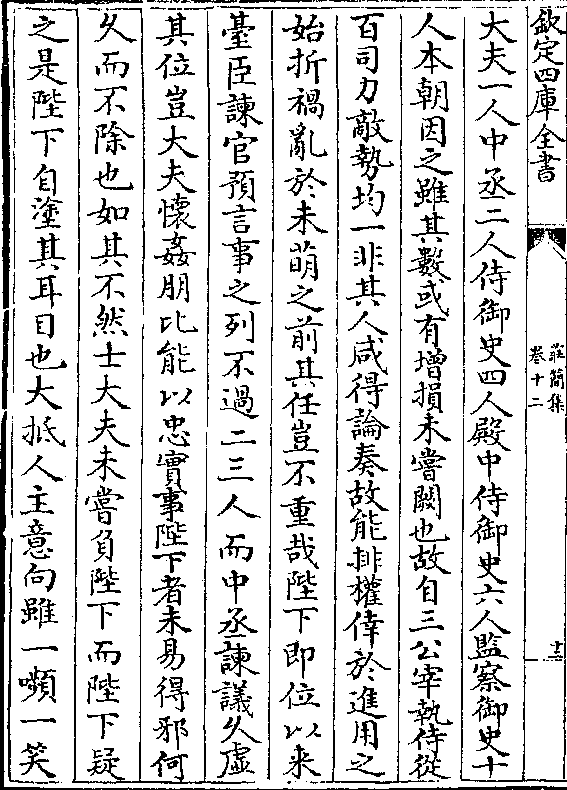 欽定四庫全書
莊簡集
卷十二
十三
大夫一人中丞二人侍御史四人殿中侍御史六人監察御史十
人本朝因之雖其數或有增損未嘗闕也故自三公宰執侍從
百司力敵勢均一非其人咸得論奏故能排權倖於進用之
始折禍亂於未萌之前其任豈不重哉陛下即位以来
臺臣諫官預言事之列不過二三人而中丞諫議久虛
其位豈大夫懷姦朋比能以忠實事陛下者未易得邪何
久而不除也如其不然士大夫未嘗負陛下而陛下疑
之是陛下自塗其耳目也大抵人主意向雖一嚬一笑